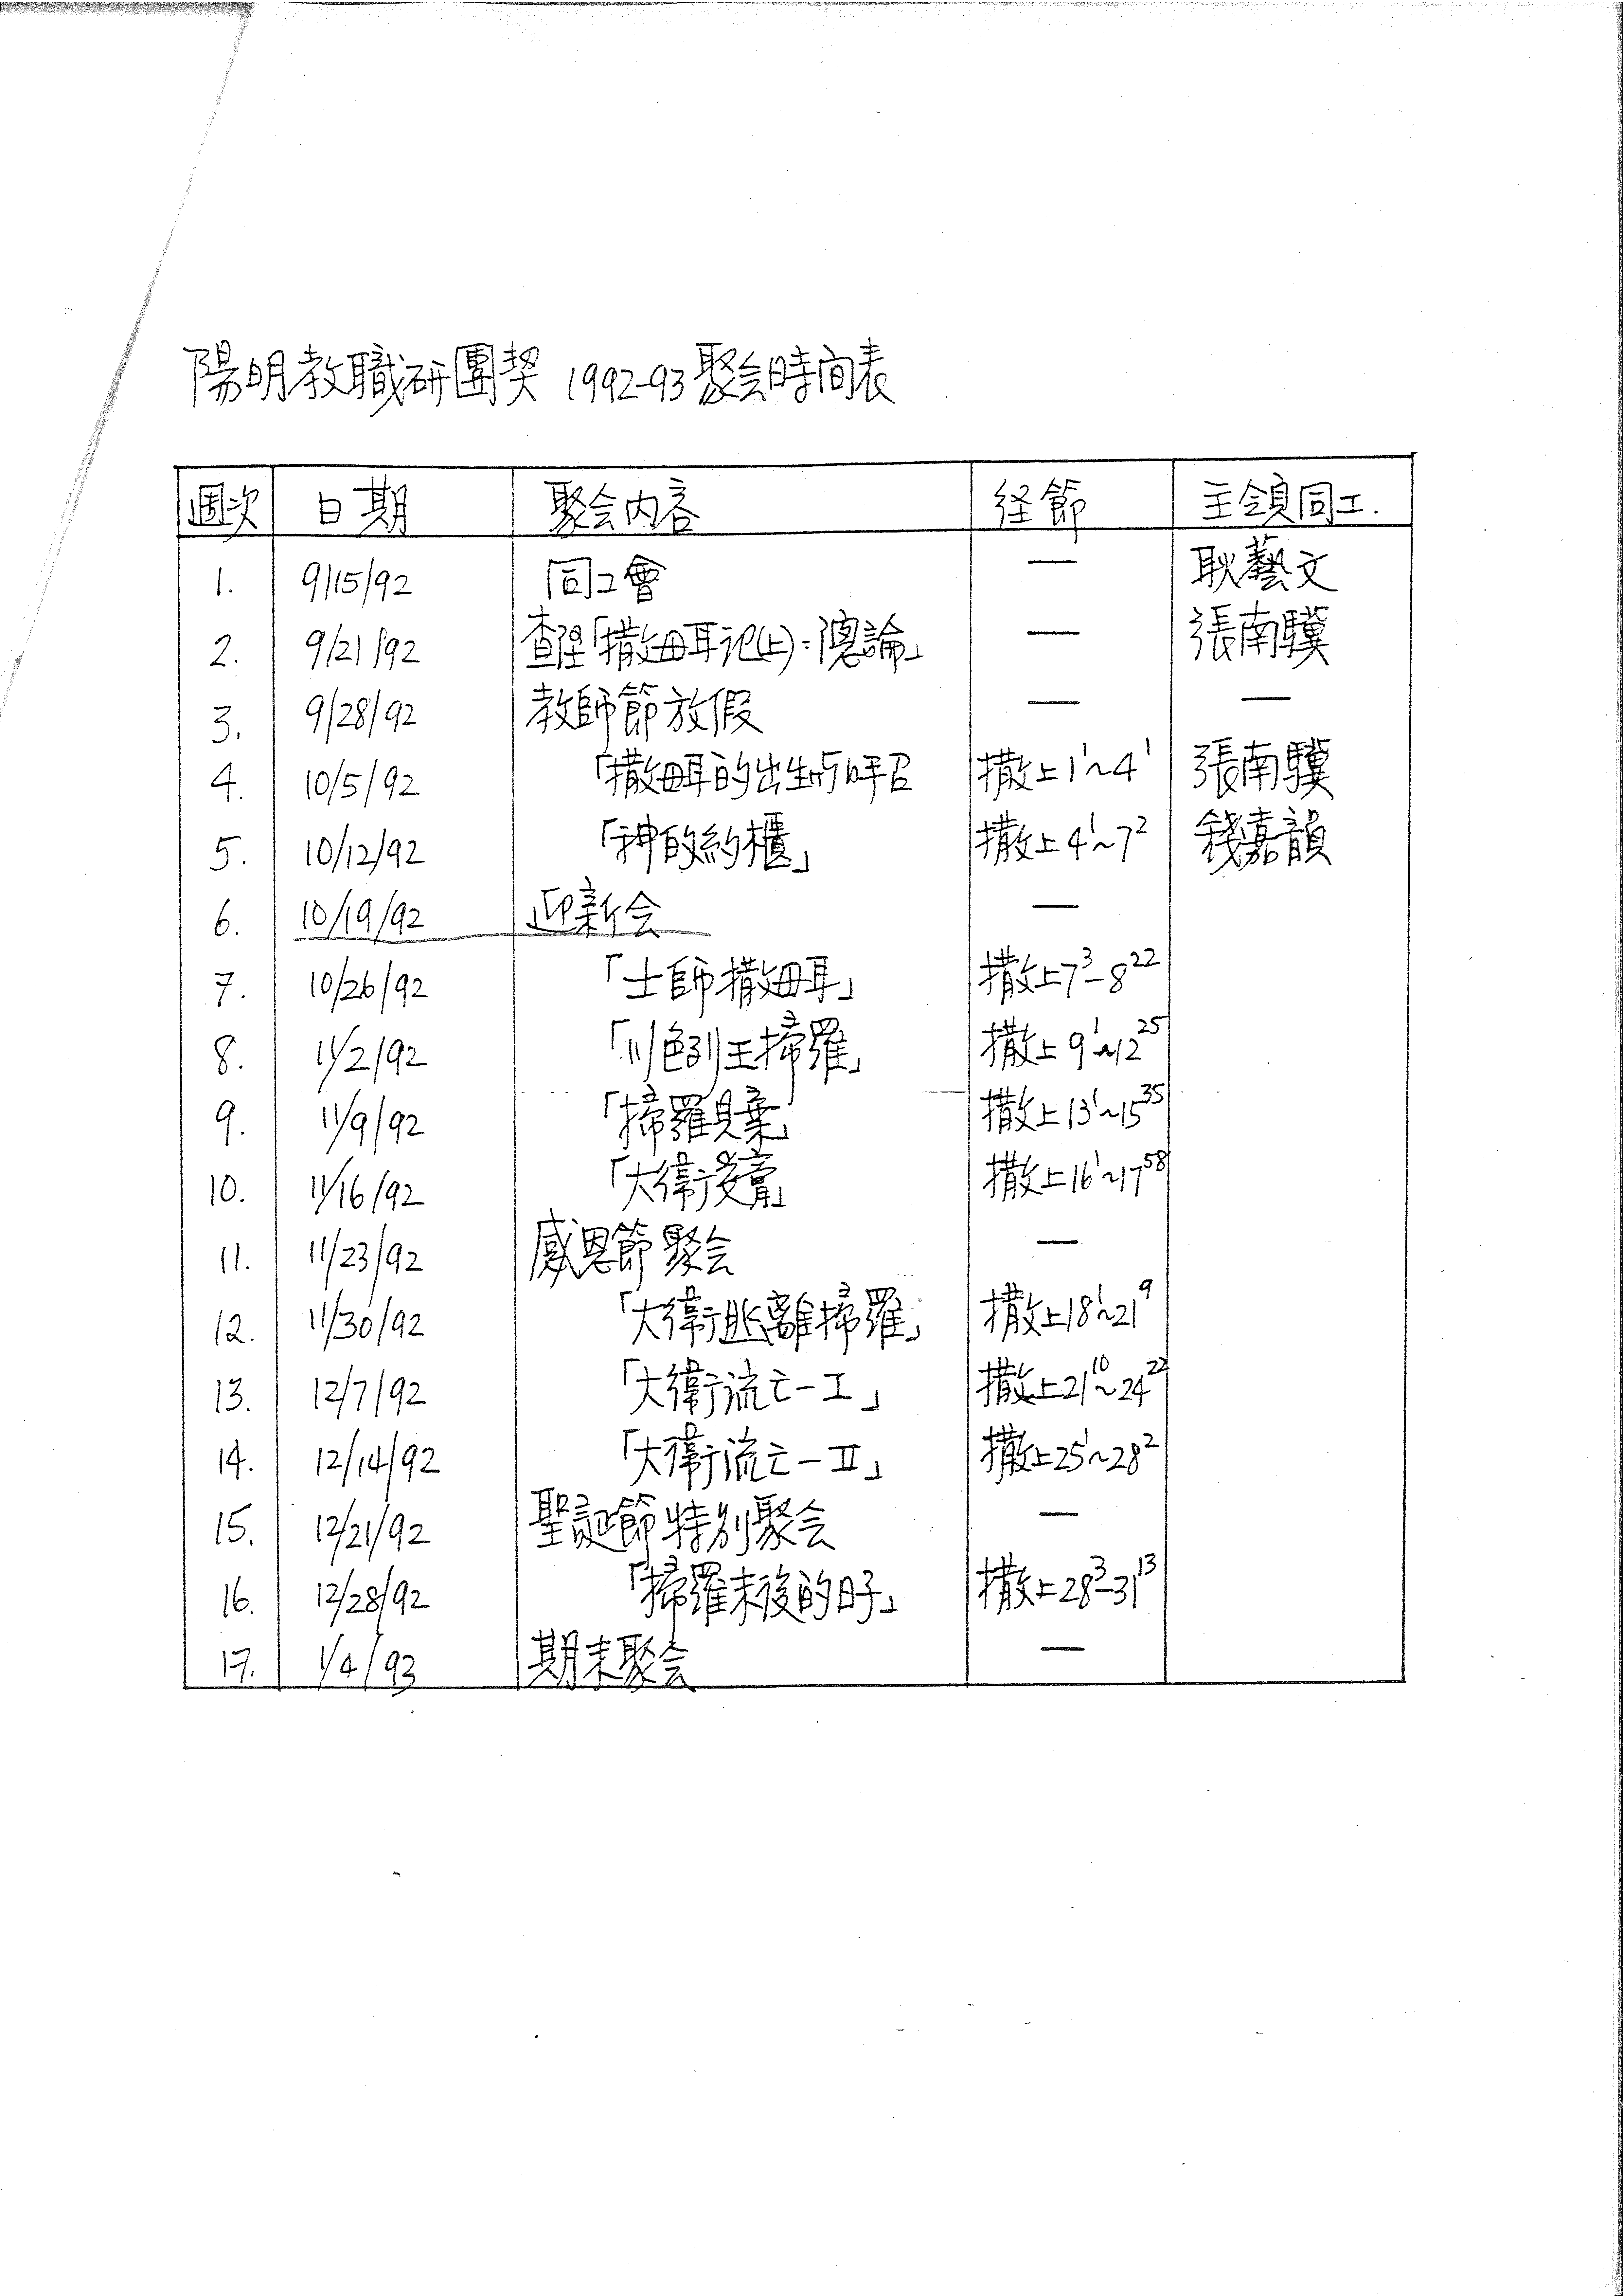 陽明教職研團契 1992-93 聚会時间表
週次 日期 聚会内容 経節 主領同工.
1. 9/15/92 同工會 — 耿藝文
2. 9/21/92 查経「撒母耳记(上):總論」 — 張南驥
3. 9/28/92 教師節放假 — —
4. 10/5/92 「撒母耳的出生与呼召 撒上1¹~4¹ 張南驥
5. 10/12/92 「神的約櫃」 撒上4¹~7² 錢嘉韻
6. 10/19/92 迎新会 —
7. 10/26/92 「士師撒母耳」 撒上7³-8²²
8. 11/2/92 「以色列王掃羅」 撒上9¹~12²⁵
9. 11/9/92 「掃羅見棄」 撒上13¹~15³⁵
10. 11/16/92 「大衛受膏」 撒上16¹~17⁵⁸
11. 11/23/92 感恩節聚会 —
12. 11/30/92 「大衛逃離掃羅」 撒上18¹~21⁹
13. 12/7/92 「大衛流亡-I」 撒上21¹⁰~24²²
14. 12/14/92 「大衛流亡-II」 撒上25¹~28²
15. 12/21/92 聖誕節特别聚会 —
16. 12/28/92 「掃羅末後的日子」 撒上28³-31¹³
17. 1/4/93 期末聚会 —